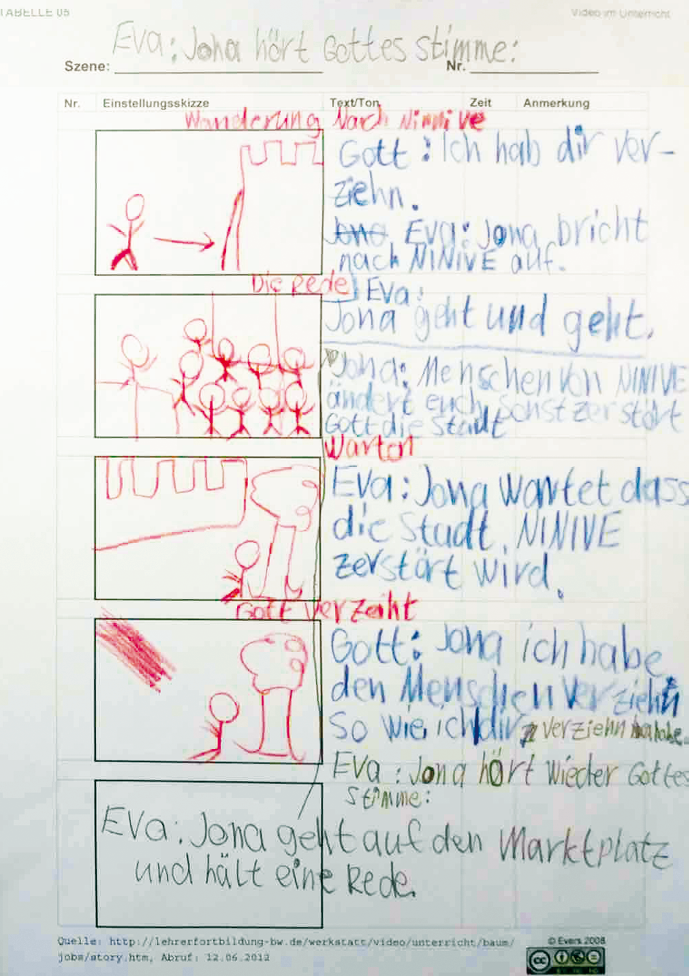 TABELLE 05
Video im Unterricht
Eva: Jona hört Gottes stimme:
Szene:
Nr.
Nr. Einstellungsskizze Text/Ton Zeit Anmerkung
Wanderung Nach Ninive
Gott: Ich hab dir ver-
ziehn.
Jona Eva: Jona bricht
nach NINIVE auf.
Die Rede
Eva:
Jona geht und geht.
Jona: Menschen von NINIVE
ändert euch sonst zerstört
Gott die stadt
Warton
Eva: Jona wartet dass
die Stadt NINIVE
zerstört wird.
Gott verzeiht
Gott: Jona ich habe
den Menschen verziehn
so wie ich dir verziehn habe.
Eva: Jona hört wieder Gottes
stimme:
Eva: Jona geht auf den Marktplatz
und hält eine Rede.
Quelle: http://lehrerfortbildung-bw.de/werkstatt/video/unterricht/baum/
jobs/story.htm, Abruf: 12.06.2012
© Evers 2008
cc